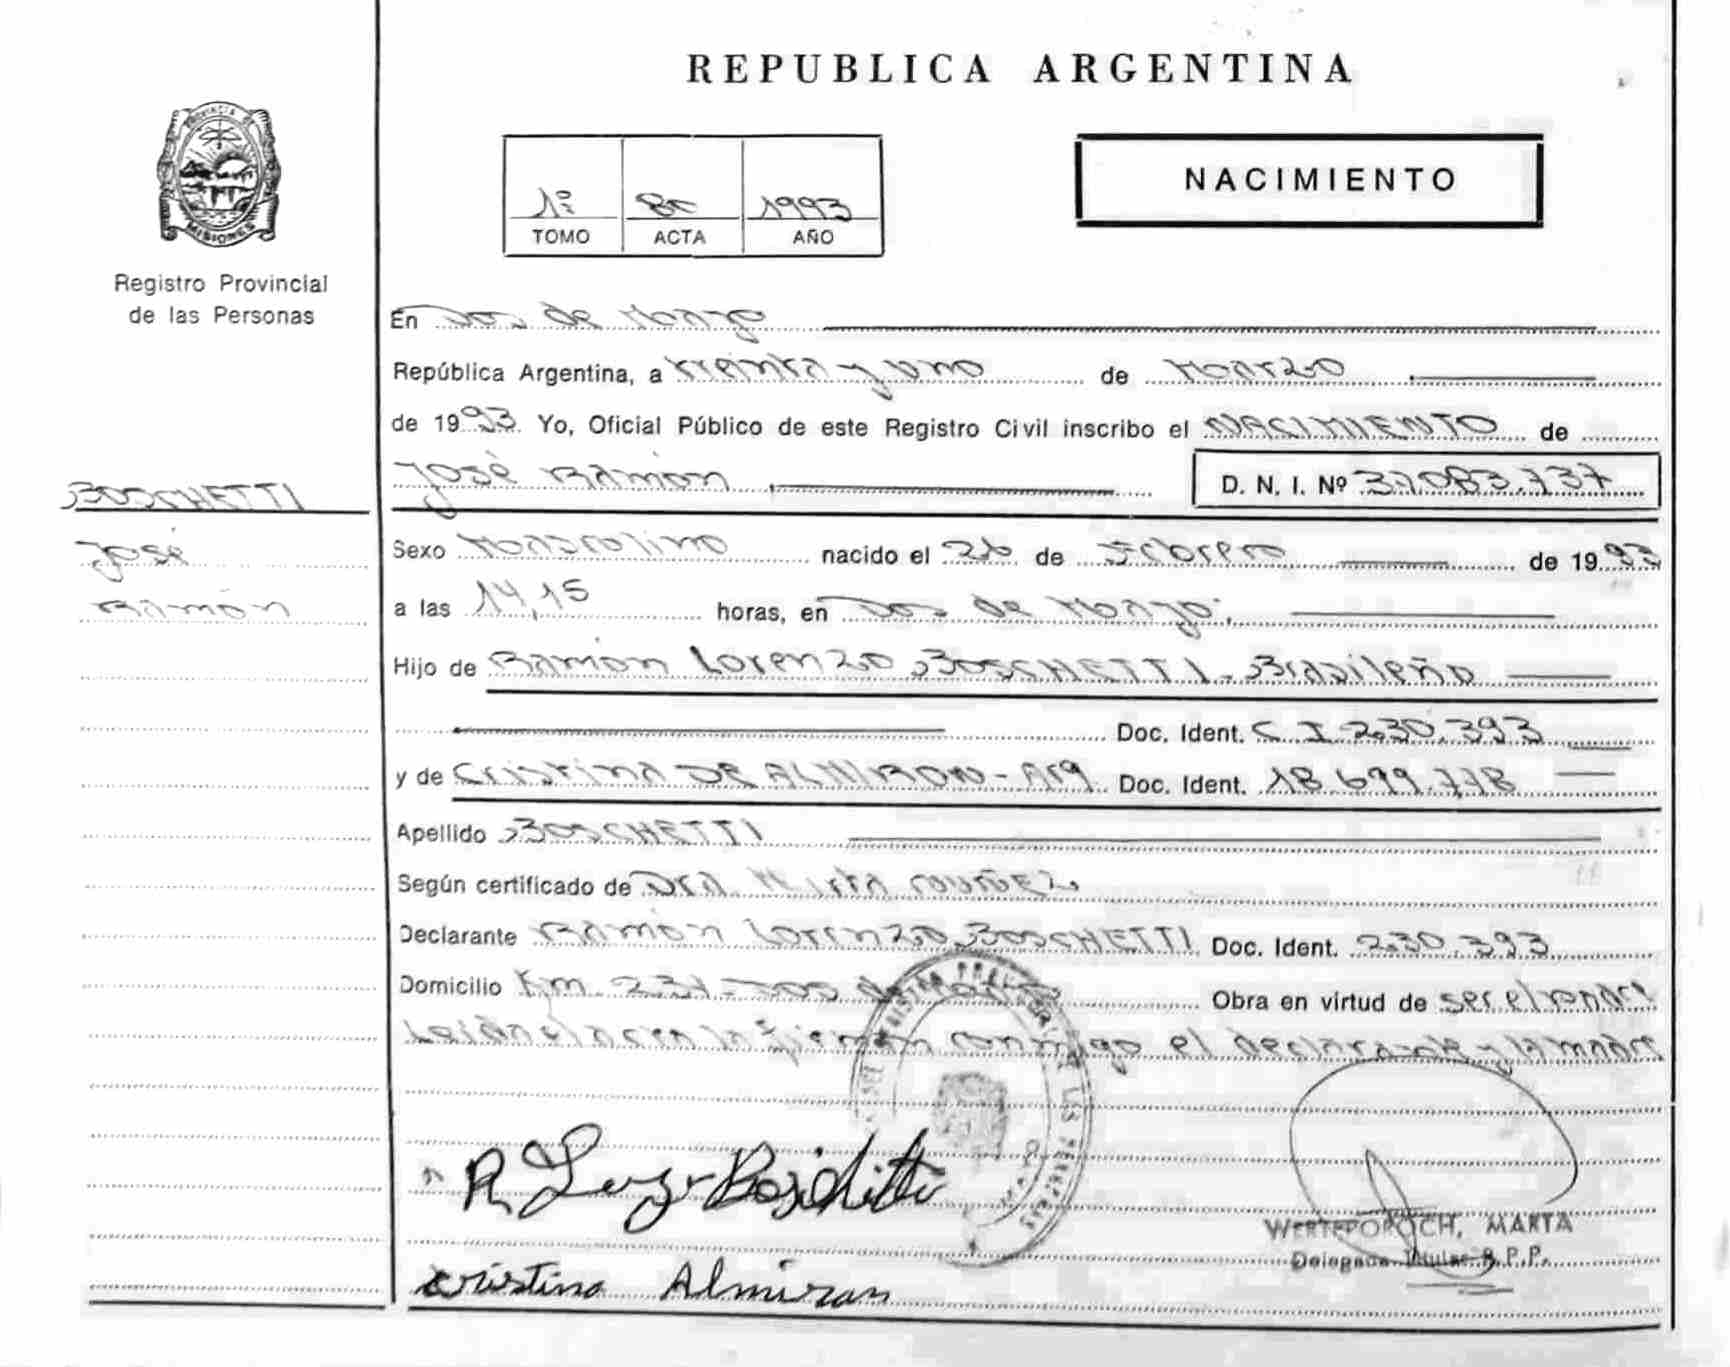 REPUBLICA ARGENTINA
PROVINCIA DE MISIONES
Registro Provincial
de las Personas
1º 1993
TOMO ACTA AÑO
NACIMIENTO
En Dos de Mayo
República Argentina, a treinta y uno de Marzo
de 1993 Yo, Oficial Público de este Registro Civil inscribo el NACIMIENTO de
José Ramón D. N. I. Nº 37.083.737
BOSCHETTI
José
Ramón
Sexo Masculino nacido el 26 de Febrero de 1993
a las 14,15 horas, en Dos de Mayo,
Hijo de Ramón Lorenzo BOSCHETTI - Brasileño
Doc. Ident. C I 230.393
y de Cristina DE ALMIRON - Arg. Doc. Ident. 18.699.778
Apellido BOSCHETTI
Según certificado de Dra. Mirta
Declarante Ramón Lorenzo BOSCHETTI Doc. Ident. 230.393
Domicilio Km. 231 - Dos de Mayo Obra en virtud de ser el padre
Leída el acta la firman conmigo el declarante y la madre
Cristina Almiron
WERTEPOROCH, MARTA
Delegada Titular R.P.P.